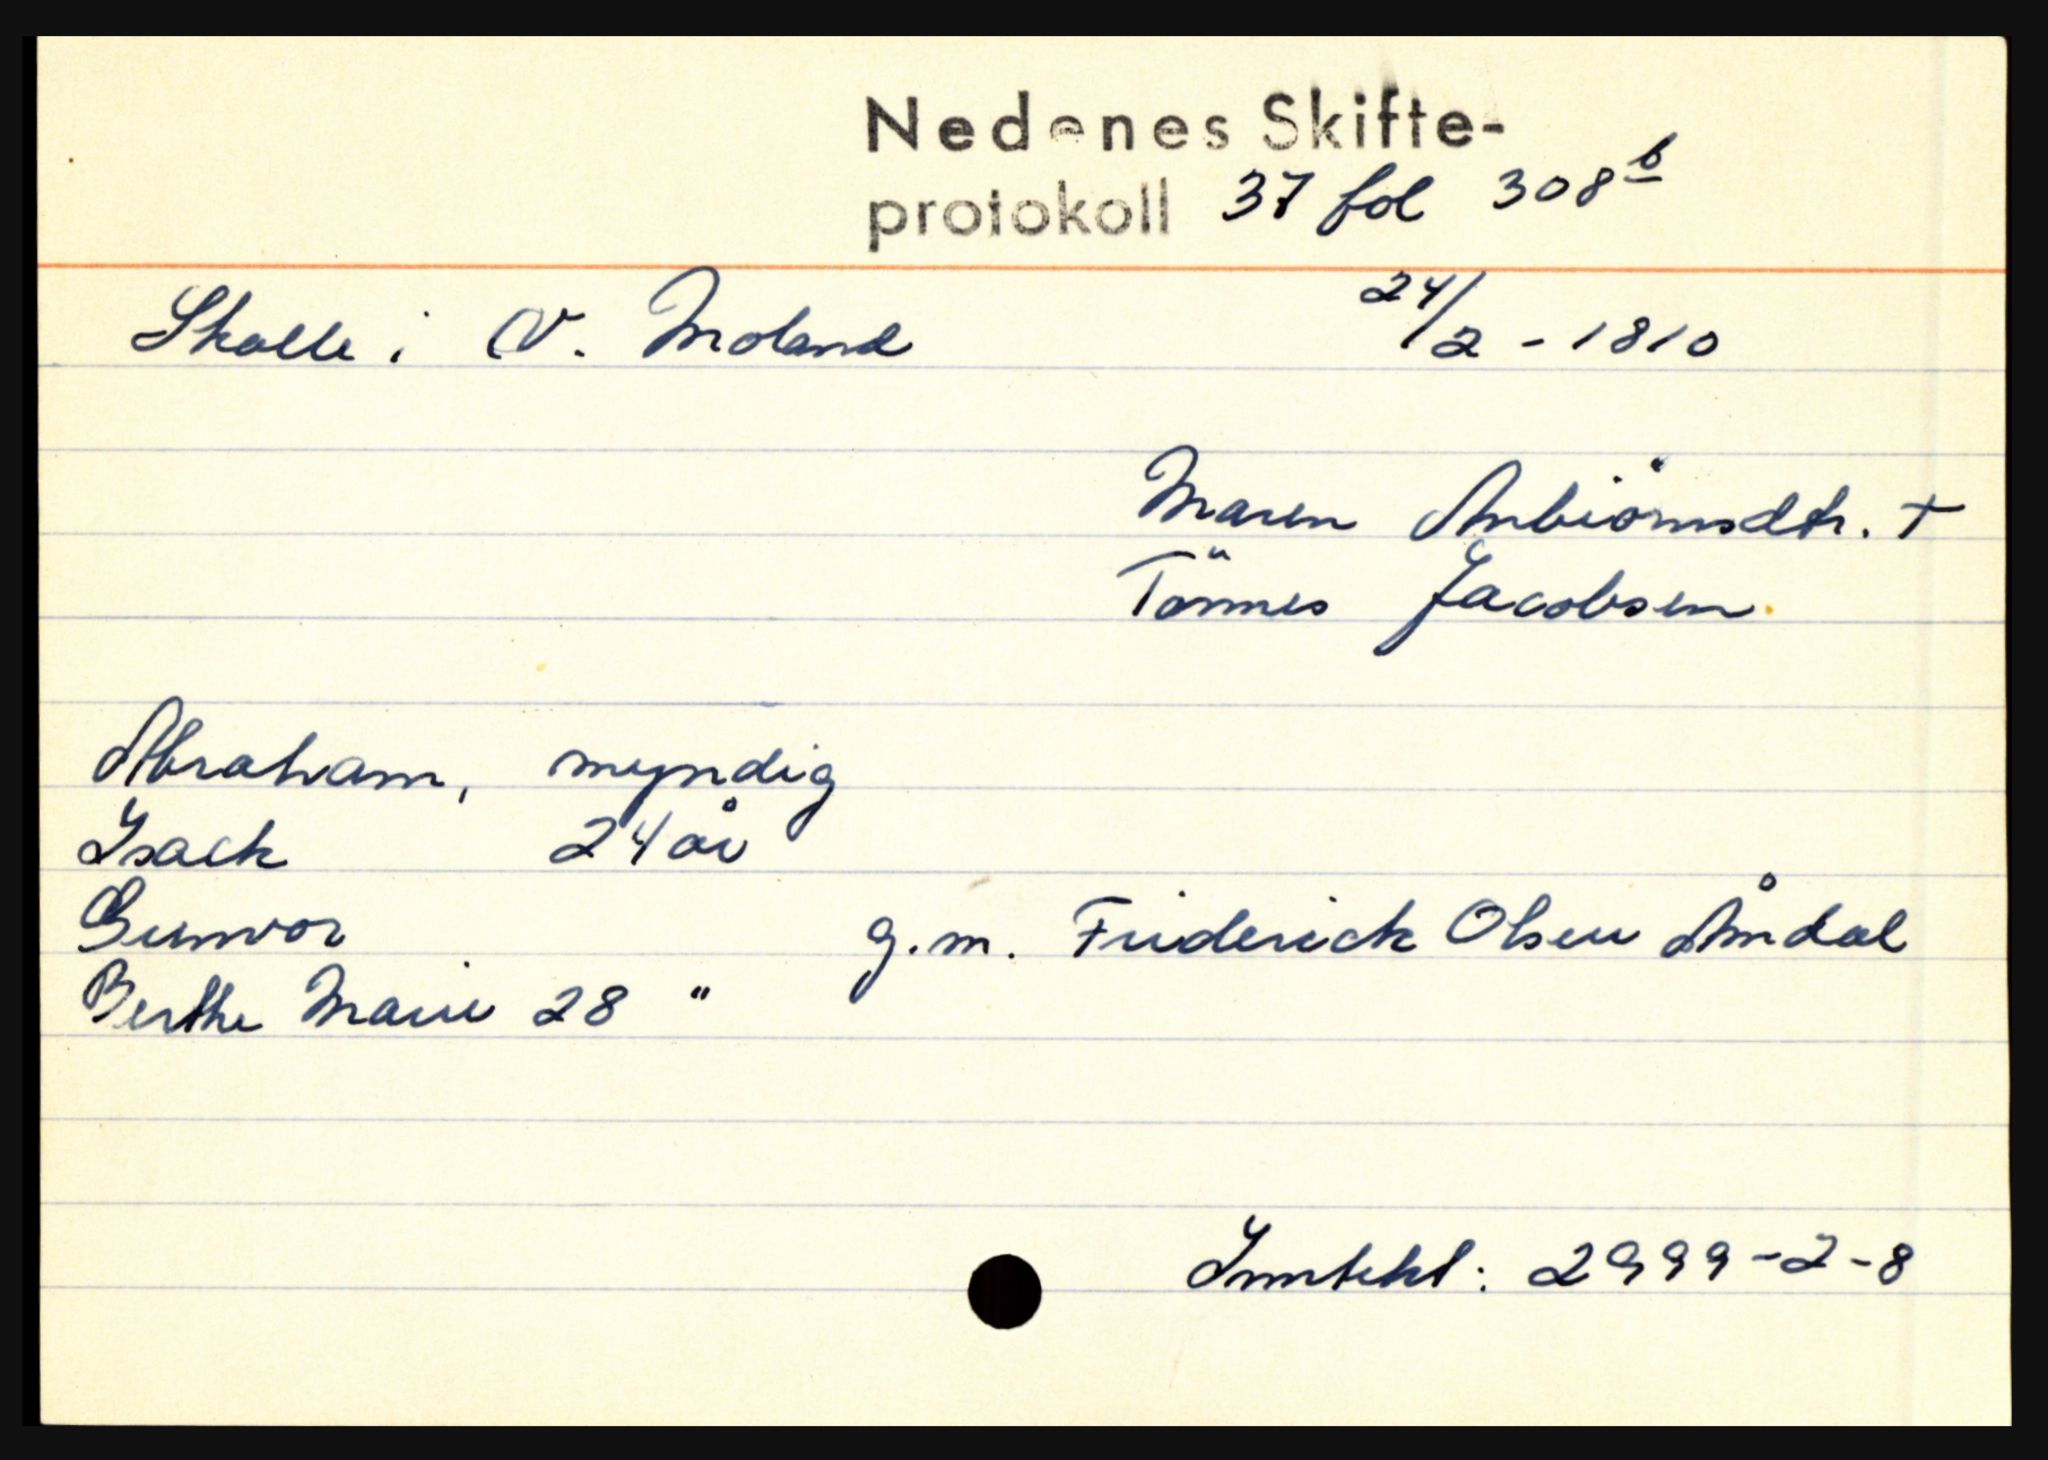 Nedenes Skifte-
protokoll 37 fol 308 b
Skalle i V. Moland 24/2 - 1810
Maren Anbiörnsdtr. +
Tönnes Jacobsen
Abraham, myndig
Isack 24 år
Gunvor g.m. Friderick Olsen Åmdal
Berthe Marie 28 "
Inntekt: 2999-2-8